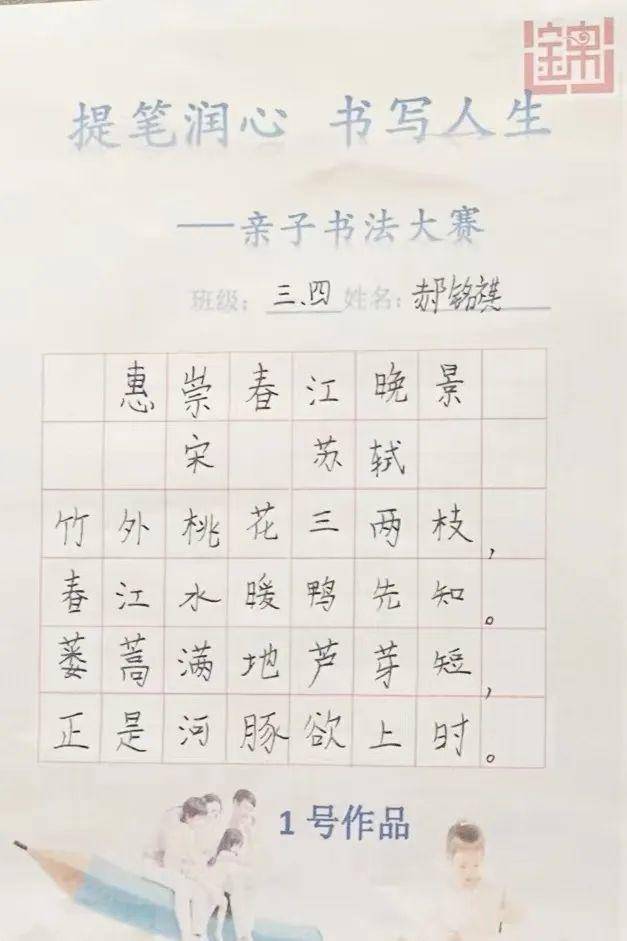 錦
提笔润心 书写人生
——亲子书法大赛
班级：三.四 姓名：郝铭祺
惠崇春江晚景
宋 苏轼
竹外桃花三两枝，
春江水暖鸭先知。
蒌蒿满地芦芽短，
正是河豚欲上时。
1号作品